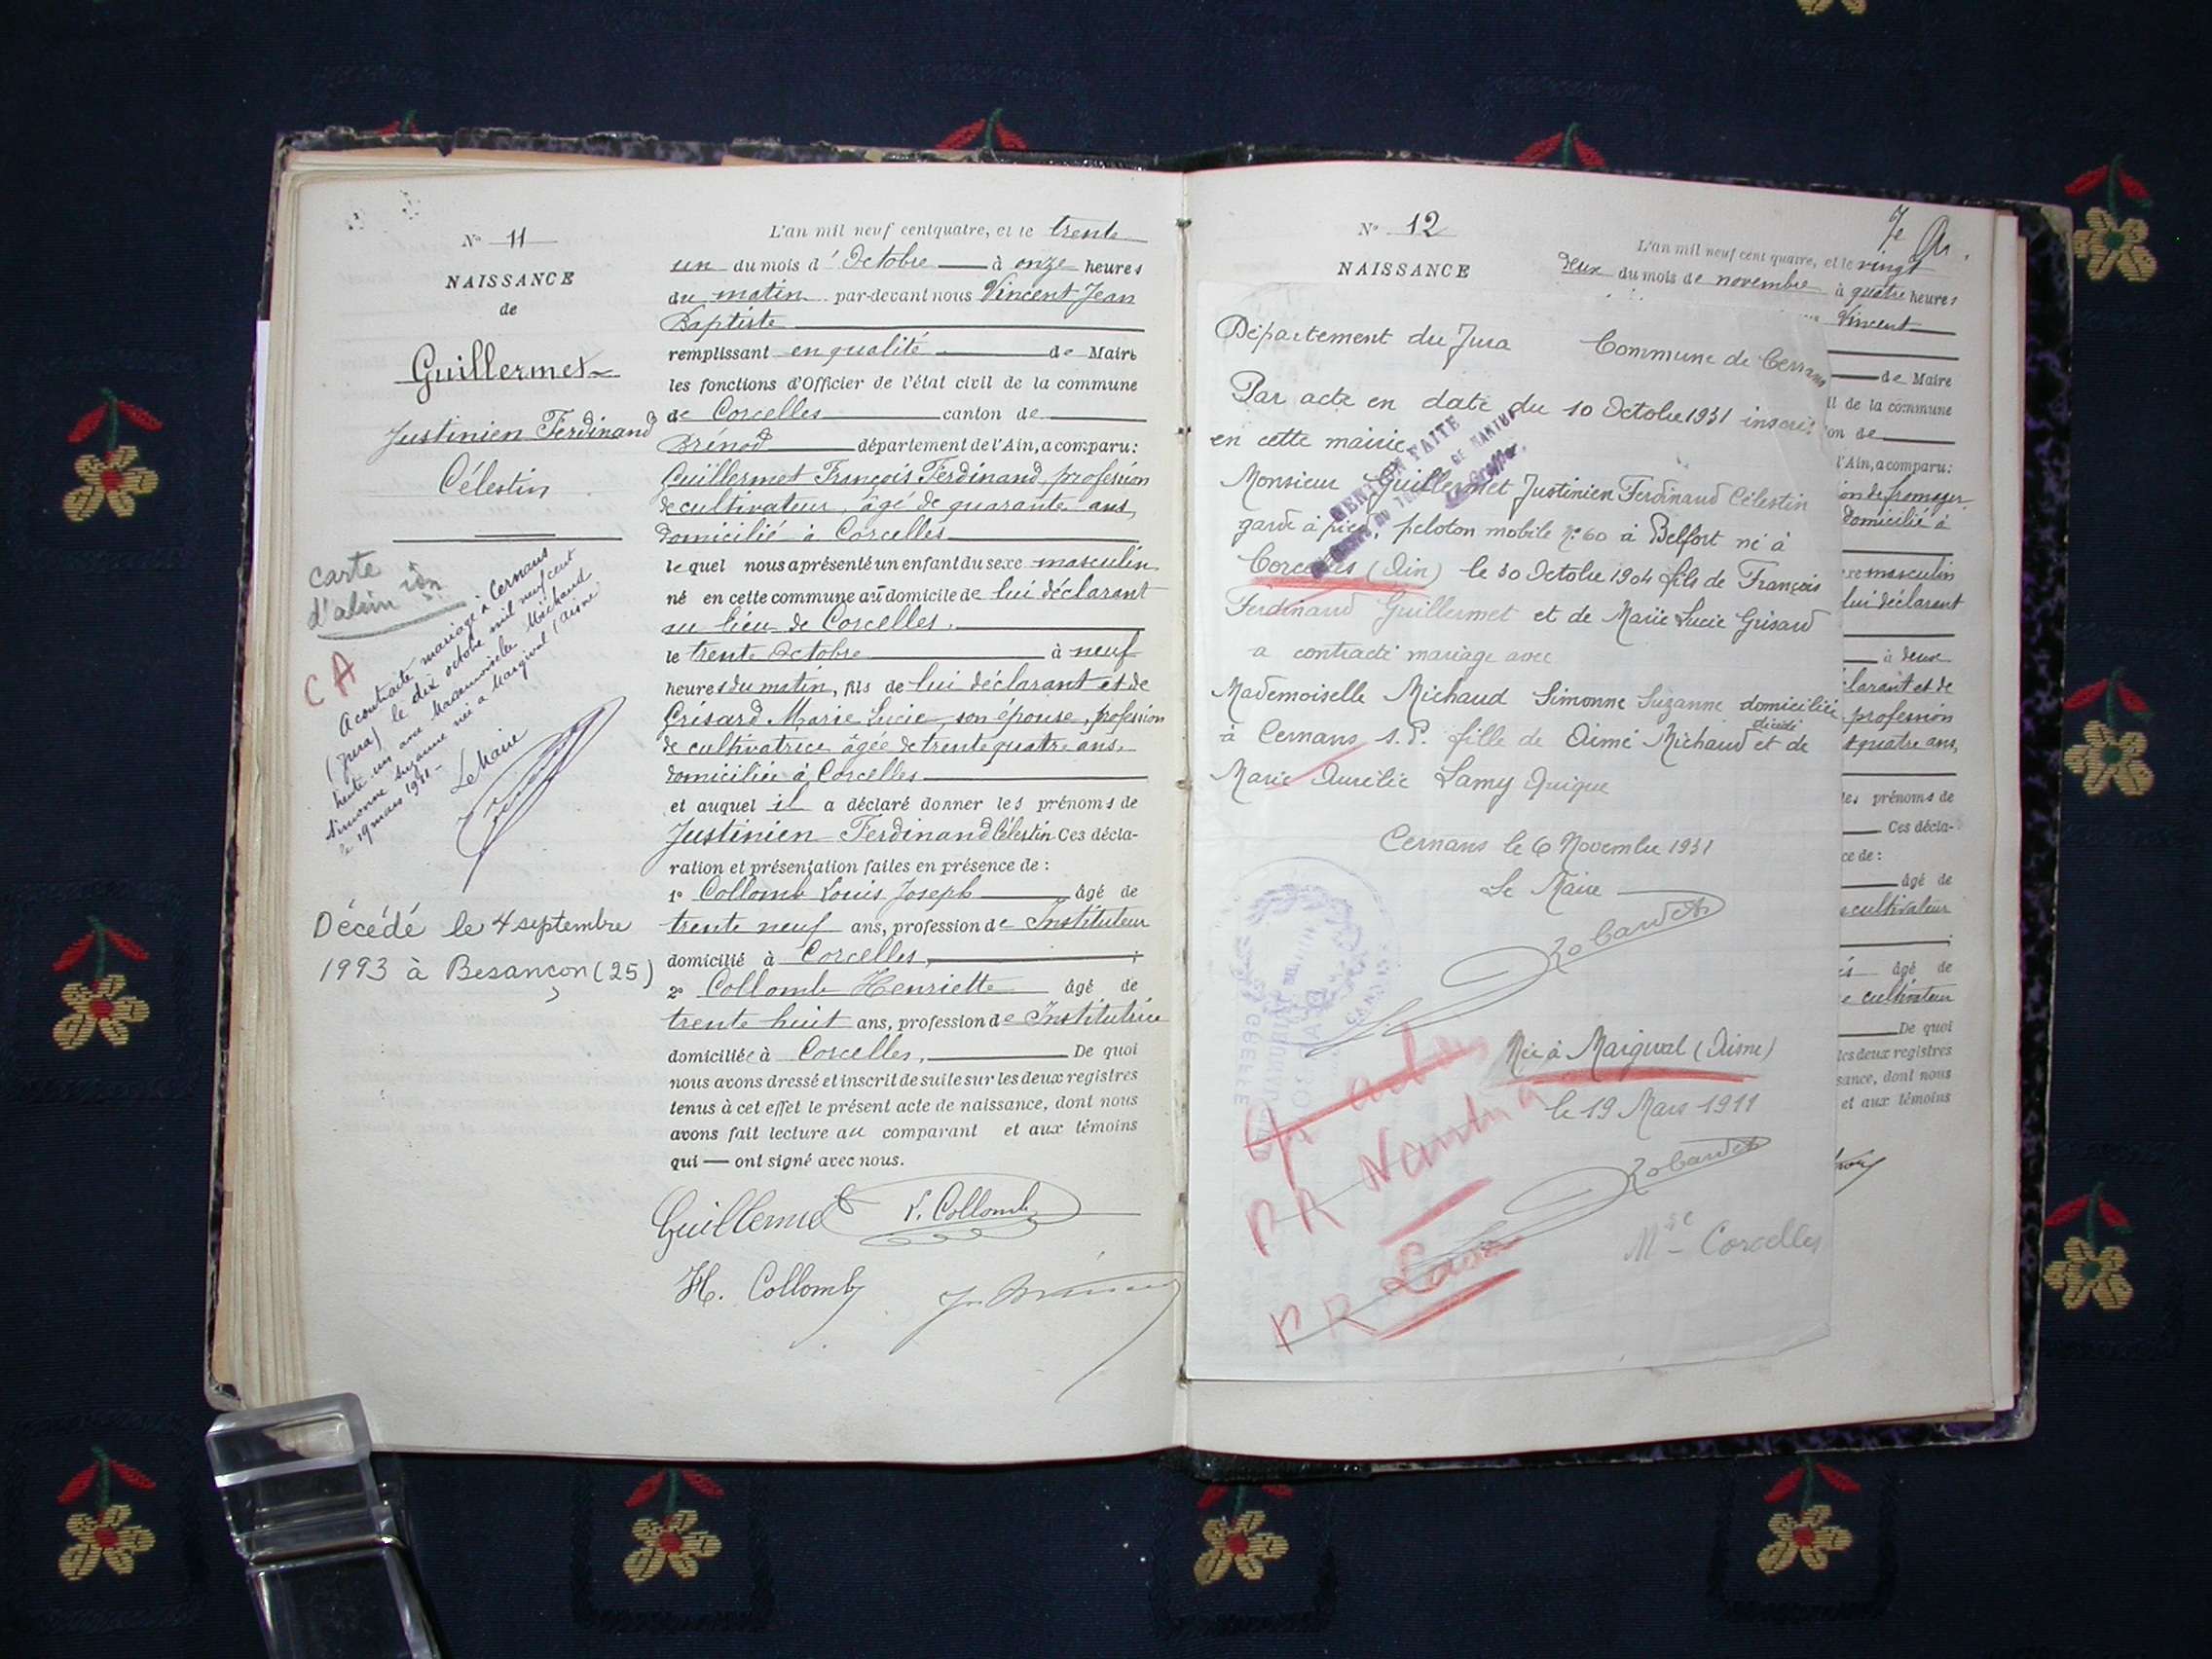 N° 11
NAISSANCE
de
Guillermet
Justinien Ferdinand
Célestin
carte
d'alim
CA
A contracté mariage à Cernans
(Jura) le dix octobre mil neuf cent
trente un avec Mademoiselle Michaud
Simonne Suzanne née à Margival (Aisne)
le 19 mars 1911 -
Le Maire
Décédé le 4 septembre
1993 à Besançon (25)
L'an mil neuf cent quatre, et le trente
un du mois d'Octobre à onze heures
du matin par-devant nous Vincent Jean
Baptiste
remplissant en qualité de Maire
les fonctions d'Officier de l'état civil de la commune
de Corcelles canton de
Brénod département de l'Ain, a comparu:
Guillermet François Ferdinand, profession
de cultivateur, âgé de quarante ans,
domicilié à Corcelles
le quel nous a présenté un enfant du sexe masculin
né en cette commune au domicile de lui déclarant
au lieu de Corcelles.
le trente Octobre à neuf
heures du matin, fils de lui déclarant et de
Grisard Marie Lucie, son épouse, profession
de cultivatrice âgée de trente quatre ans,
domiciliée à Corcelles
et auquel il a déclaré donner les prénoms de
Justinien Ferdinand Célestin Ces décla-
ration et présentation faites en présence de :
1° Collomb Louis Joseph âgé de
trente neuf ans, profession de Instituteur
domicilié à Corcelles,
2° Collomb Henriette âgé de
trente huit ans, profession de Institutrice
domiciliée à Corcelles, De quoi
nous avons dressé et inscrit de suite sur les deux registres
tenus à cet effet le présent acte de naissance, dont nous
avons fait lecture au comparant et aux témoins
qui — ont signé avec nous.
Guillermet L. Collomb
H. Collomb
N° 12
NAISSANCE
7e
L'an mil neuf cent quatre, et le vingt
deux du mois de novembre à quatre heures
Vincent
de Maire
il de la commune
on de
l'Ain, a comparu:
on de fromager
domicilié à
xe masculin
lui déclarant
à deux
clarant et de
profession
t quatre ans,
les prénoms de
Ces décla-
ce de :
âgé de
cultivateur
âgé de
e cultivateur
De quoi
les deux registres
sance, dont nous
et aux témoins
Département du Jura Commune de Cernans
Par acte en date du 10 Octobre 1931 inscrit
en cette mairie
MENTION FAITE
DE NANTUA
Le Greffier,
Monsieur Guillermet Justinien Ferdinand Célestin
garde à pied, peloton mobile N° 60 à Belfort né à
Corcelles (Ain) le 30 Octobre 1904 fils de François
Ferdinand Guillermet et de Marie Lucie Grisard
a contracté mariage avec
Mademoiselle Michaud Simonne Suzanne domiciliée
à Cernans s.p. fille de Aimé Michaud décédé et de
Marie Aurélie Lamy Quique
Cernans le 6 Novembre 1931
Le Maire
Née à Margival (Aisne)
le 19 Mars 1911
GREFFE
PR Nantua
PR
Corcelles